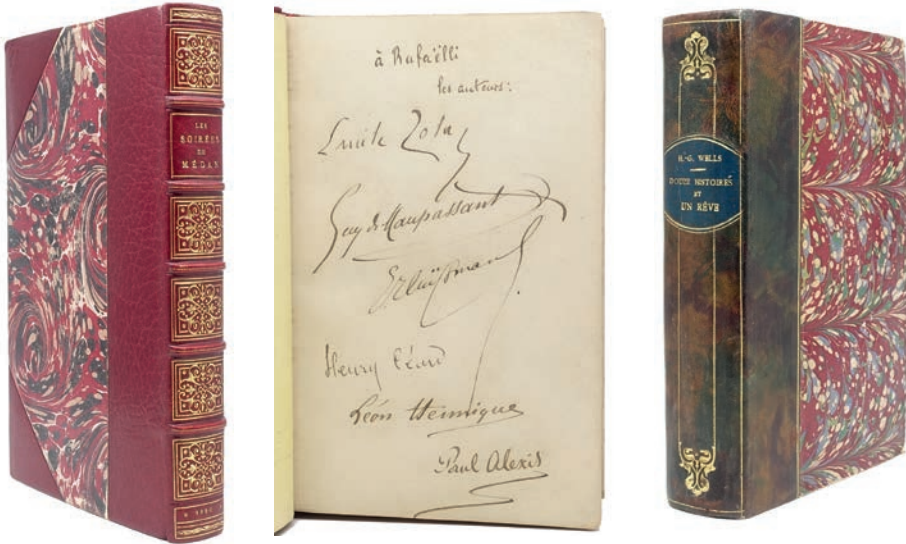 LES
SOIRÉES
DE
MÉDAN
à Rafaëlli
les auteurs:
Emile Zola
Guy de Maupassant
Henry Céard
Léon Hennique
Paul Alexis
H.-G. WELLS
DOUZE HISTOIRES
ET
UN RÊVE